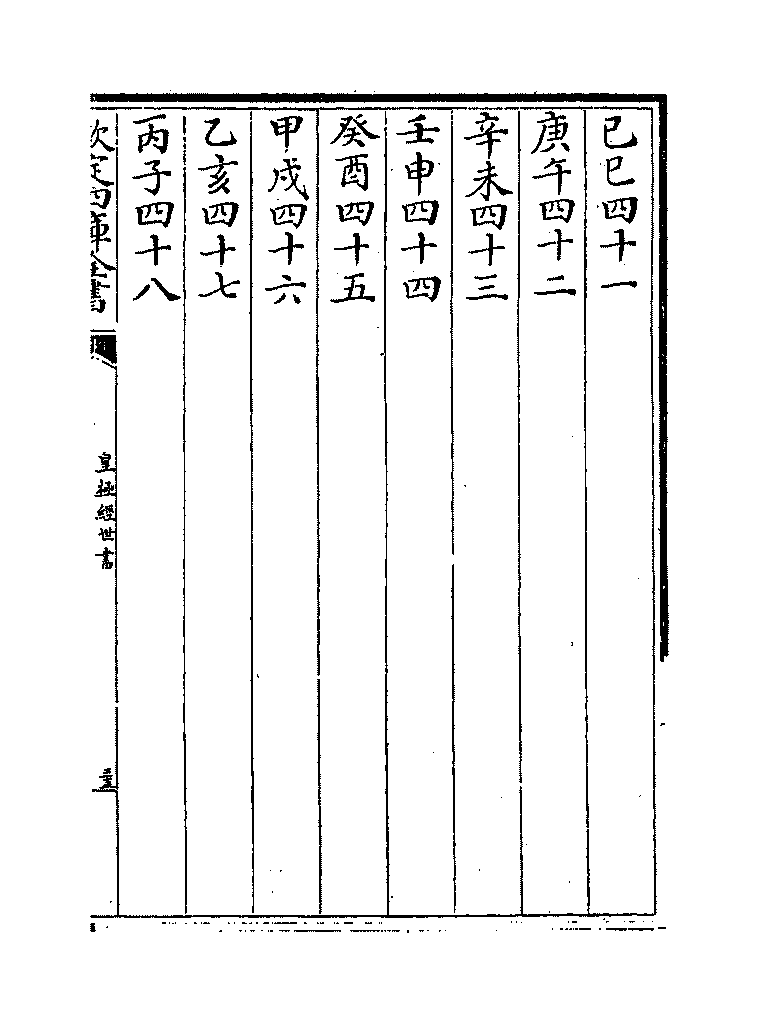 己巳四十一
庚午四十二
辛未四十三
壬申四十四
癸酉四十五
甲戌四十六
乙亥四十七
丙子四十八
欽定四庫全書
皇極經世書